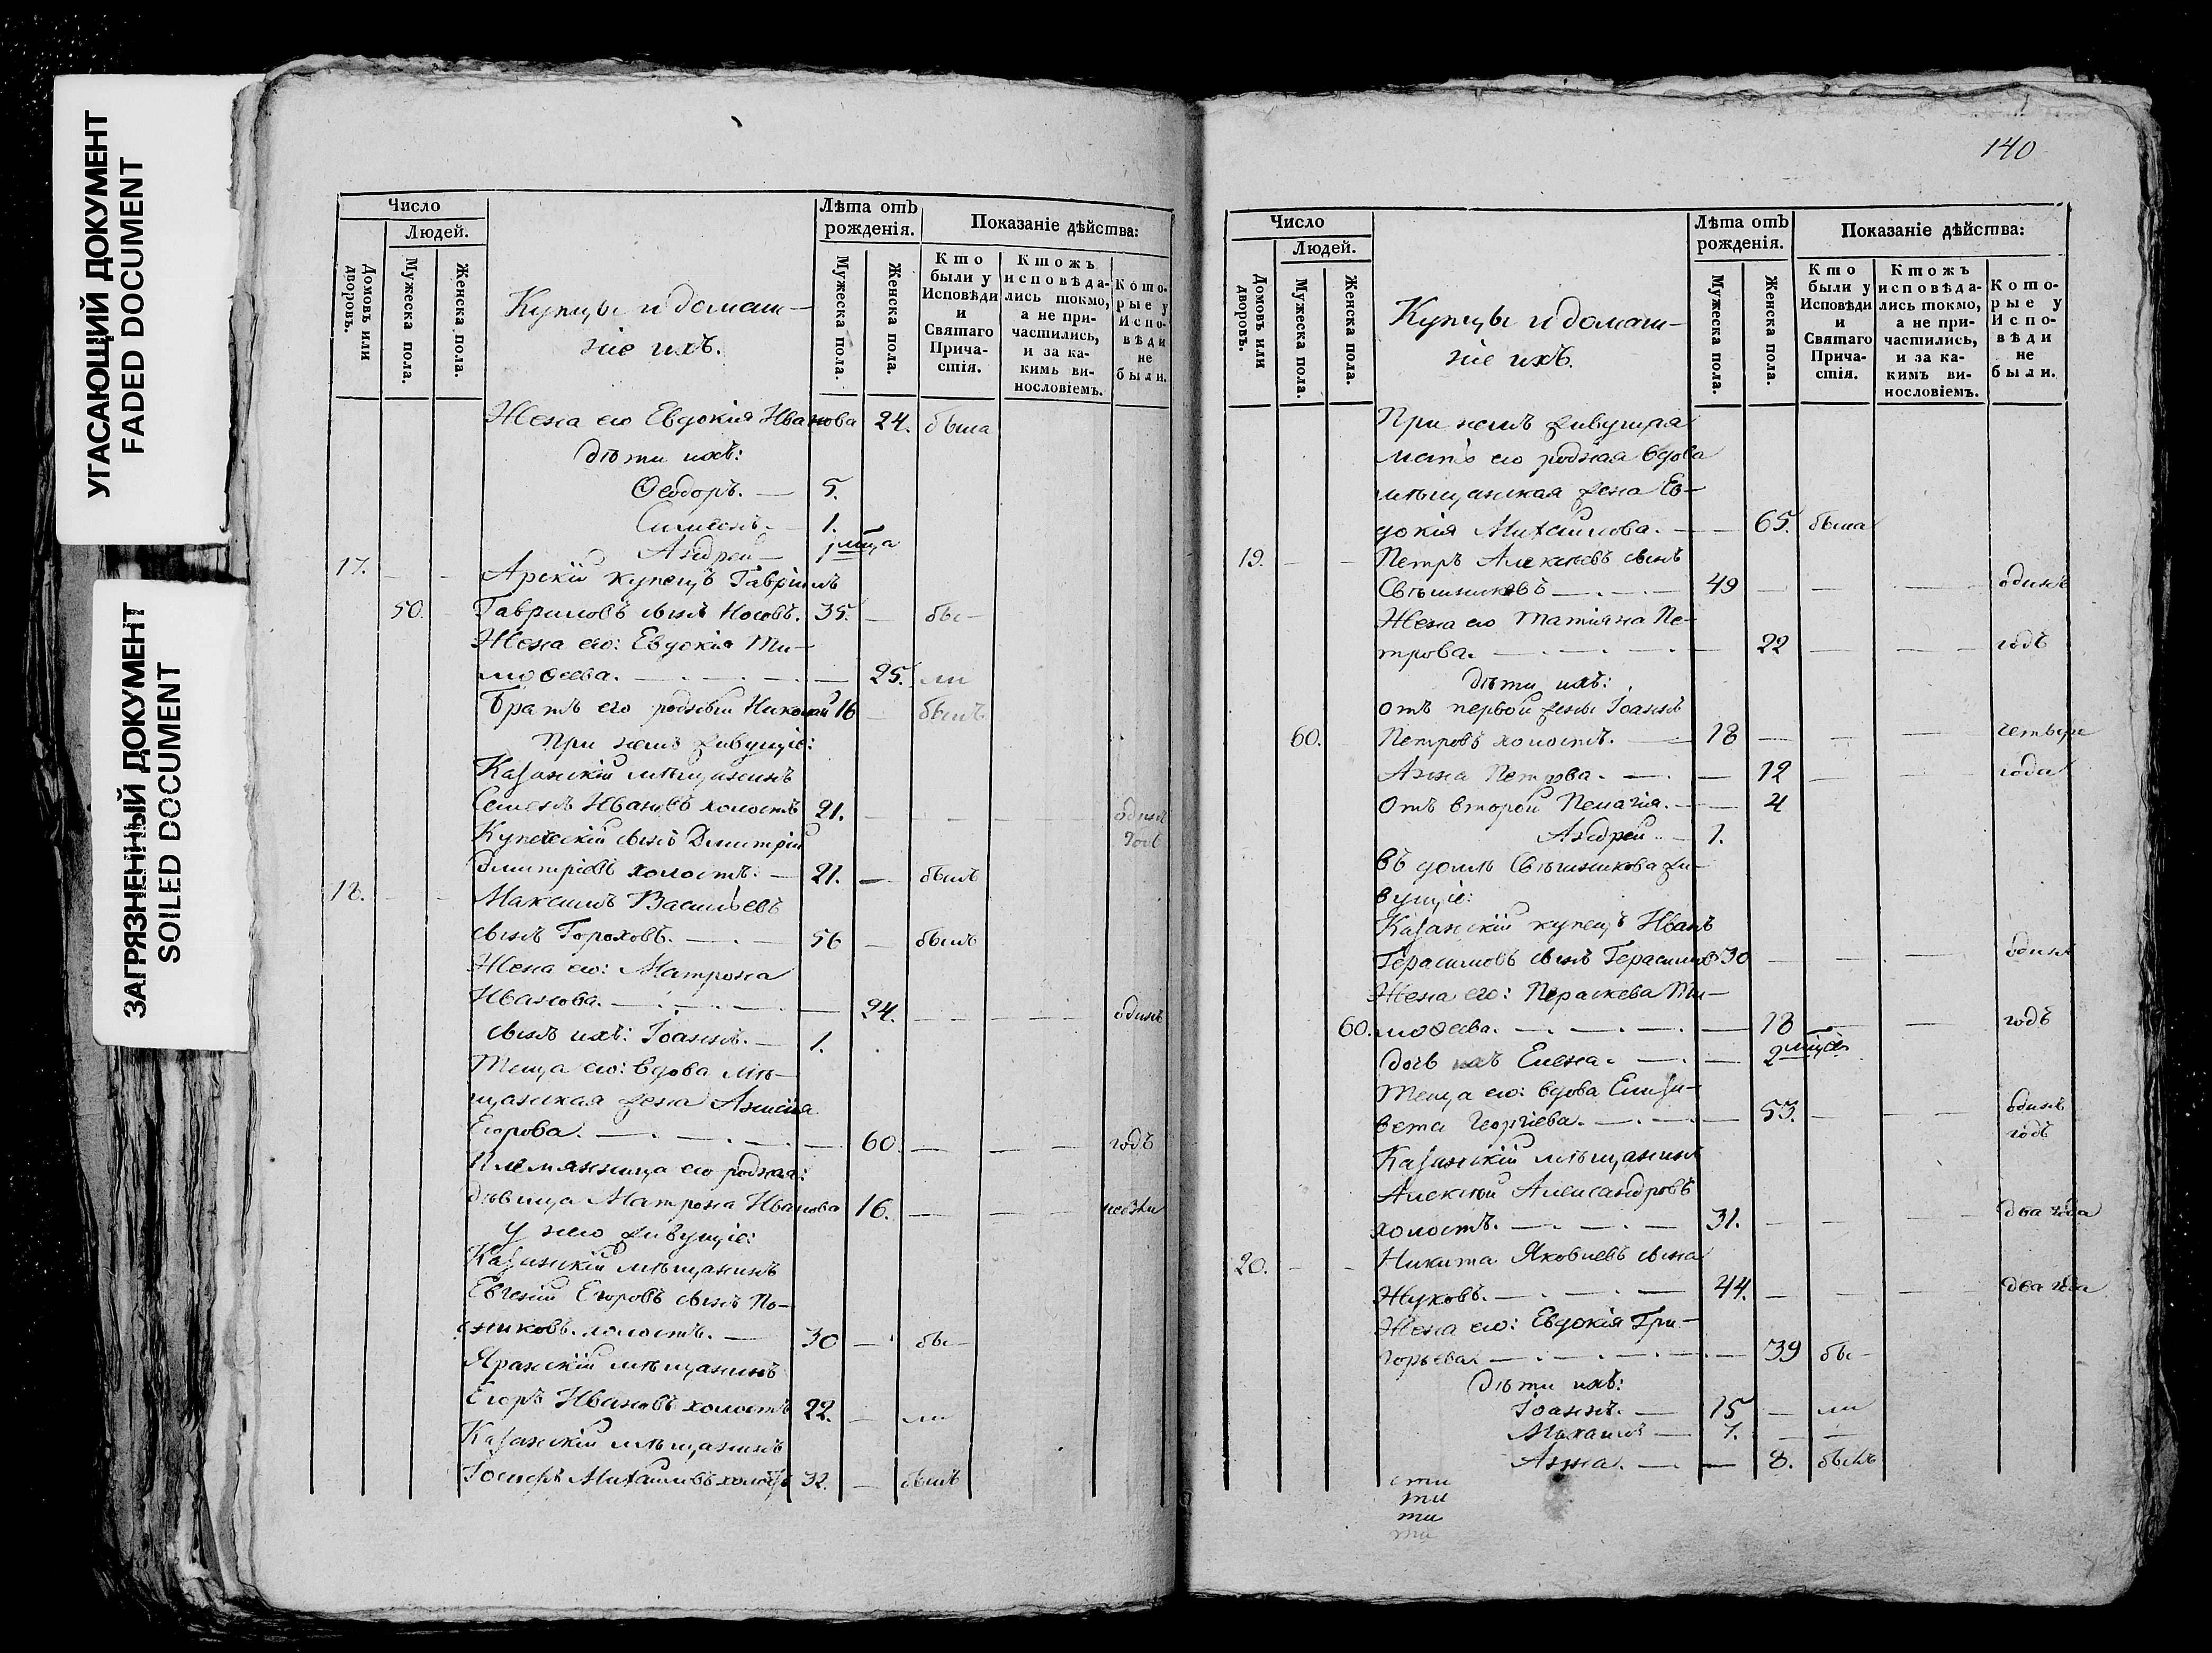 УГАСАЮЩИЙ ДОКУМЕНТ
FADED DOCUMENT
ЗАГРЯЗНЕННЫЙ ДОКУМЕНТ
SOILED DOCUMENT
Число
Людей.
Домовъ или дворовъ.
Мужеска пола.
Женска пола.
Купцы и домаш-
ніе ихъ.
Лѣта отъ
рожденія.
Мужеска пола.
Женска пола.
Показаніе дѣйства:
Кто
были у
Исповѣди
и
Святаго
Прича-
стія.
Ктожъ
исповѣда-
лись токмо,
а не при-
частились,
и за ка-
кимъ ви-
нословіемъ.
Кото-
рые у
Испо-
вѣди
не
были.
Жена его Евдокія Иванова 24. была
дѣти ихъ:
Ѳеодоръ. — 5.
Симеонъ. — 1.
Андрей — 1 мца
17. — — Арскій купецъ Гавріилъ
50. — Гавриловъ сынъ Носовъ. 35. — бы-
Жена его: Евдокія Ти-
моѳеева. — 25. ли
Братъ его родный Николай 16 — былъ
При немъ живущіе:
Казанскій мѣщанинъ
Семенъ Ивановъ холостъ 21. — — — одинъ
Купеческій сынъ Дмитрій годъ
Дмитріевъ холостъ. — 21. — былъ
18. — — Максимъ Васильевъ
сынъ Гороховъ. — 56 — былъ
Жена его: Матрона
Иванова. — 24. — — одинъ
сынъ ихъ: Іоаннъ. — 1.
Теща его: вдова мѣ-
щанская жена Анисія
Егорова. — 60. — — годъ
Племянница его родная:
дѣвица Матрона Иванова 16. — —
У него живущіе:
Казанскій мѣщанинъ
Евгеній Егоровъ сынъ По-
никовъ. холостъ. — 30 — бы-
Яранскій мѣщанинъ
Егоръ Ивановъ холостъ 22. — ли
Казанскій мѣщанинъ
Іосифъ Михайловъ холостъ 32. — былъ
140
Число
Людей.
Домовъ или дворовъ.
Мужеска пола.
Женска пола.
Купцы и домаш-
ніе ихъ.
Лѣта отъ
рожденія.
Мужеска пола.
Женска пола.
Показаніе дѣйства:
Кто
были у
Исповѣди
и
Святаго
Прича-
стія.
Ктожъ
исповѣда-
лись токмо,
а не при-
частились,
и за ка-
кимъ ви-
нословіемъ.
Кото-
рые у
Испо-
вѣди
не
были.
При немъ живущая
мать его родная вдова
мѣщанская жена Ев-
докія Михайлова. — 65. была
19. — — Петръ Алексѣевъ сынъ
Свѣшниковъ — 49 — — — одинъ
Жена его Татіана Пе-
трова. — 22 — — годъ
дѣти ихъ:
отъ первой жены Іоаннъ
60. Петровъ холостъ. — 18 — — — четыре
Анна Петрова. — 12 — — года
Отъ второй Пелагія. — 4
Андрей — 1.
въ домѣ Свѣшникова жи-
вущіе:
Казанскій купецъ Иванъ
Герасимовъ сынъ Герасимовъ 30 — — — одинъ
Жена его: Параскева Ти-
60. моѳеева. — 18 — — годъ
дочь ихъ Елена. — 2 мцевъ
Теща его: вдова Елиза-
вета Георгіева. — 53. — — одинъ
годъ
Казанскій мѣщанинъ
Алексѣй Александровъ
холостъ. — 31. — — — два года
20. — — Никита Яковлевъ сынъ
Жуковъ. — 44. — — — два года
Жена его: Евдокія Гри-
горьева. — 39 бы-
дѣти ихъ:
Іоаннъ. — 15 — ли
Михаилъ — 7. — —
Анна. — 8. былъ
сти
ти
ти
ти